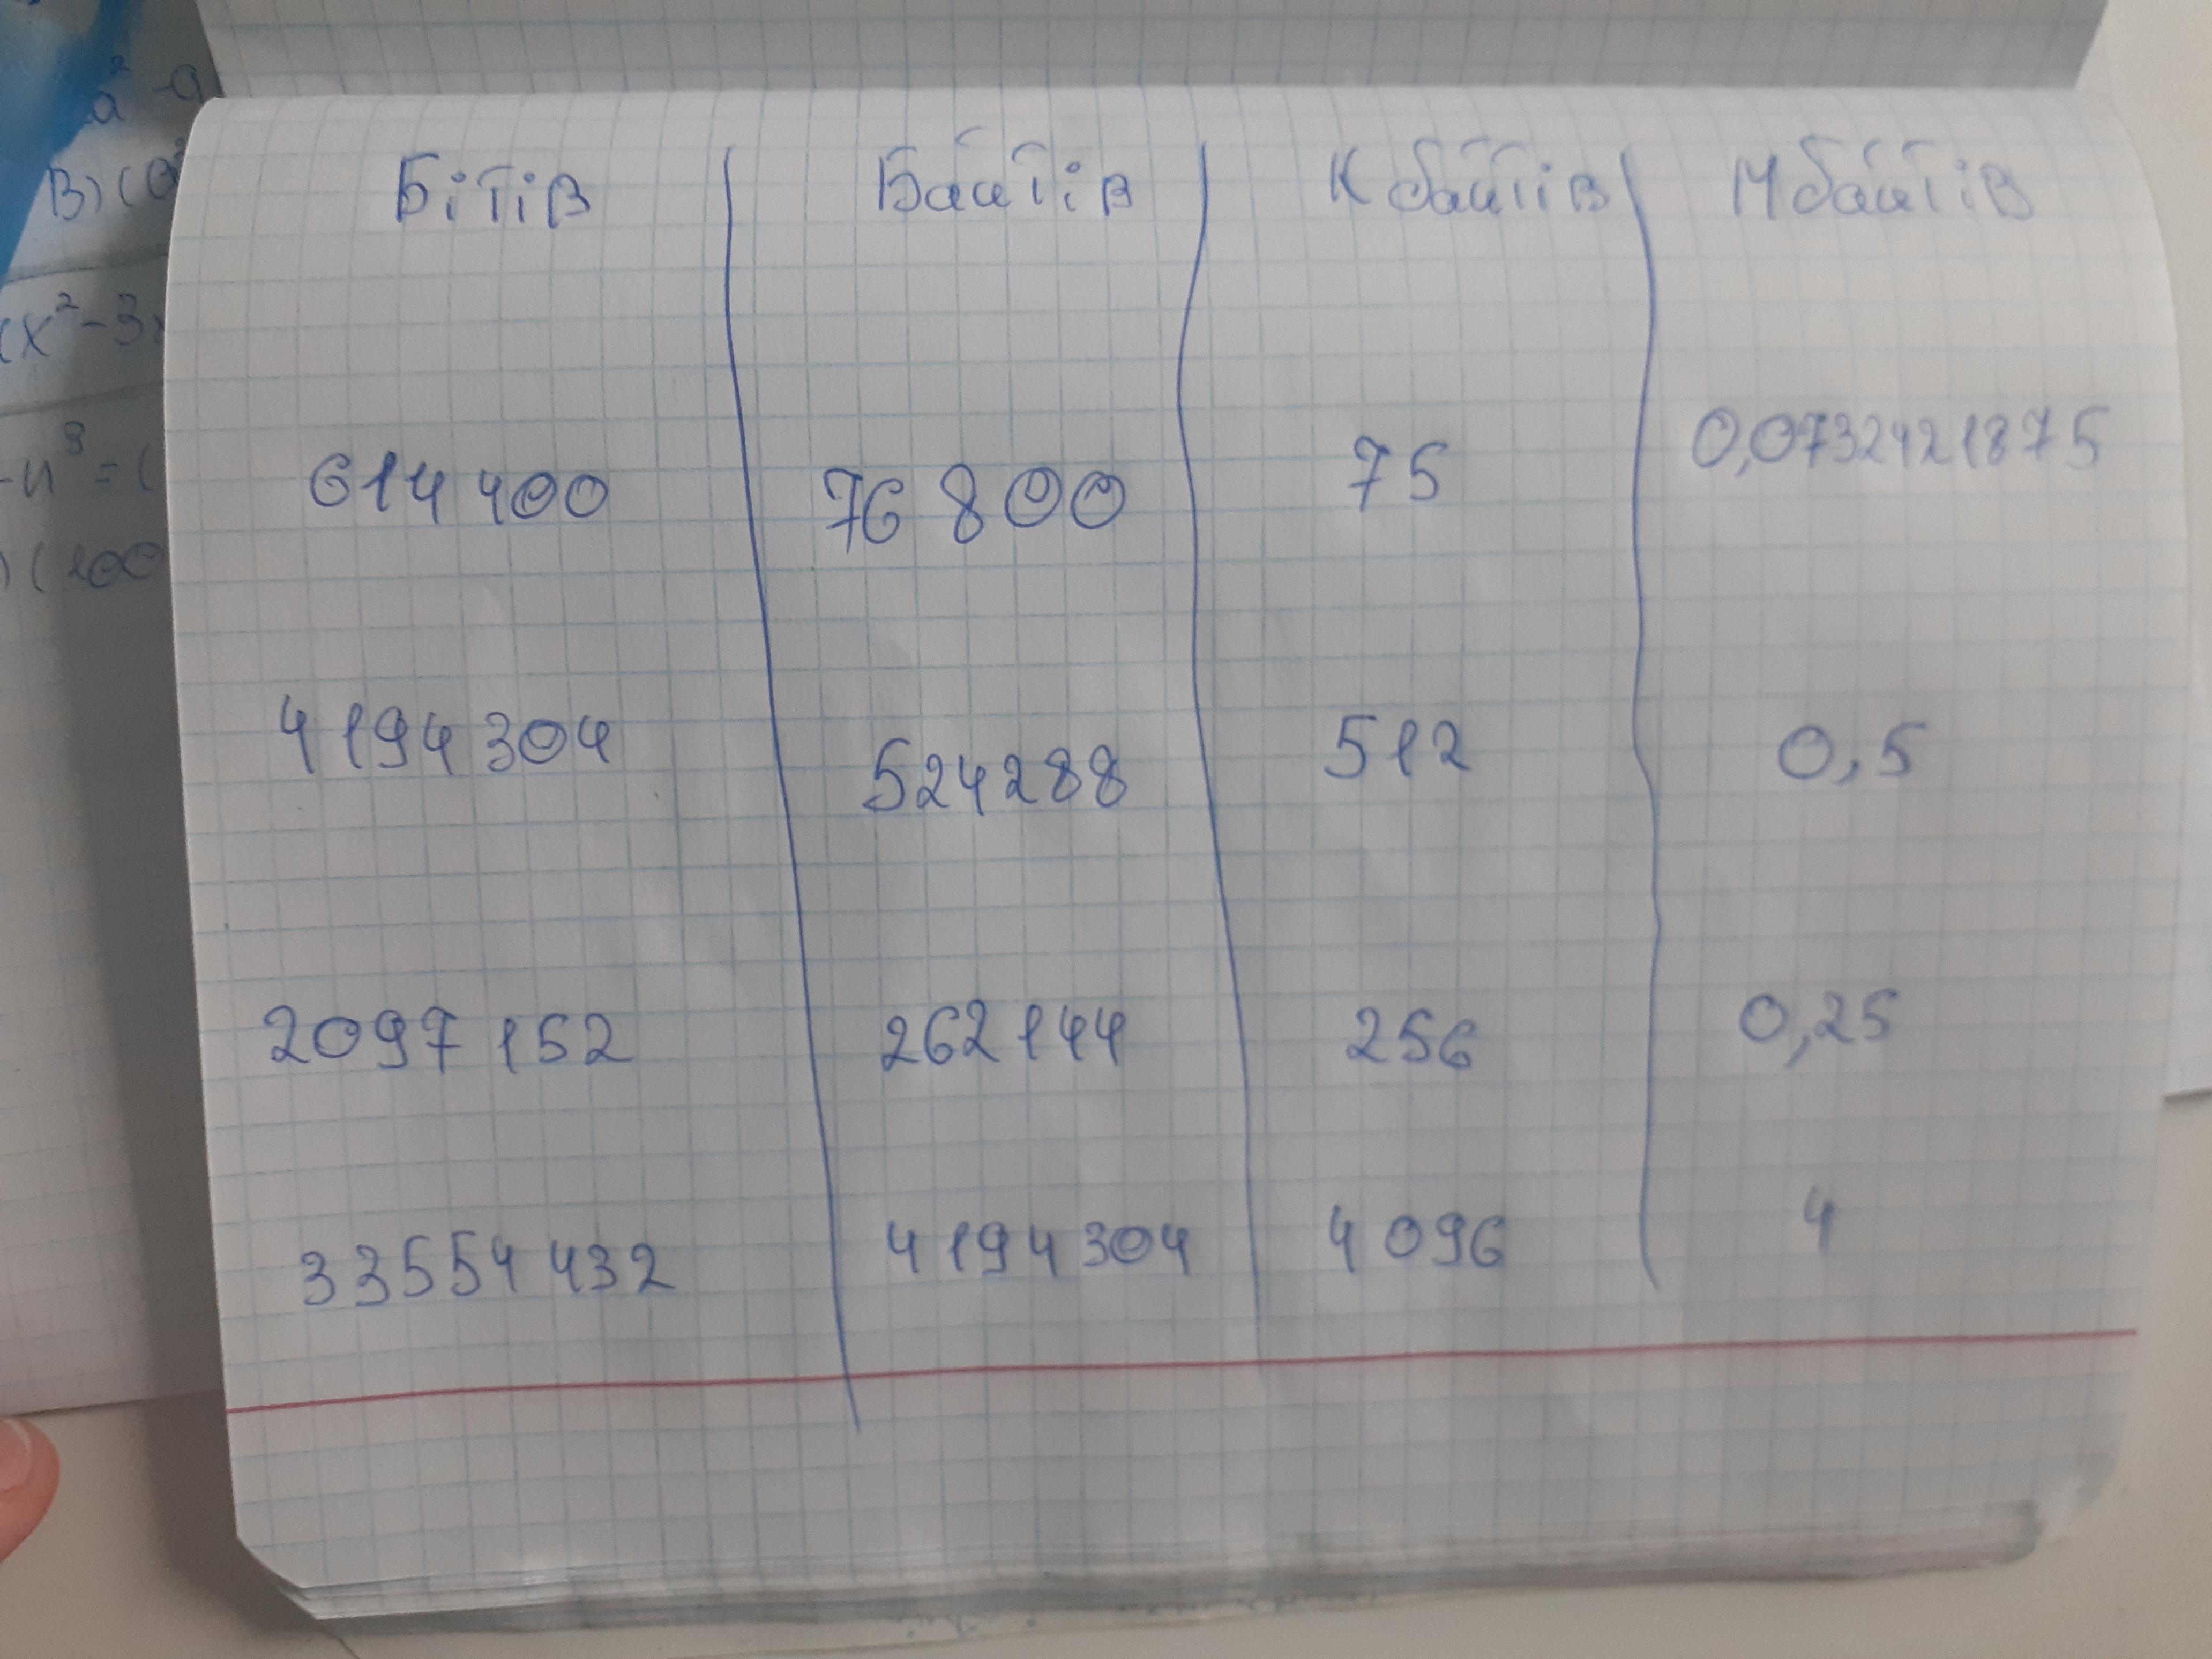 Бітів Байтів Кбайтів Мбайтів
614 400 76 800 75 0,0732421875
4194 304 524288 512 0,5
2097 152 262 144 256 0,25
33554 432 4194 304 4 096 4
(x² - 3
(200